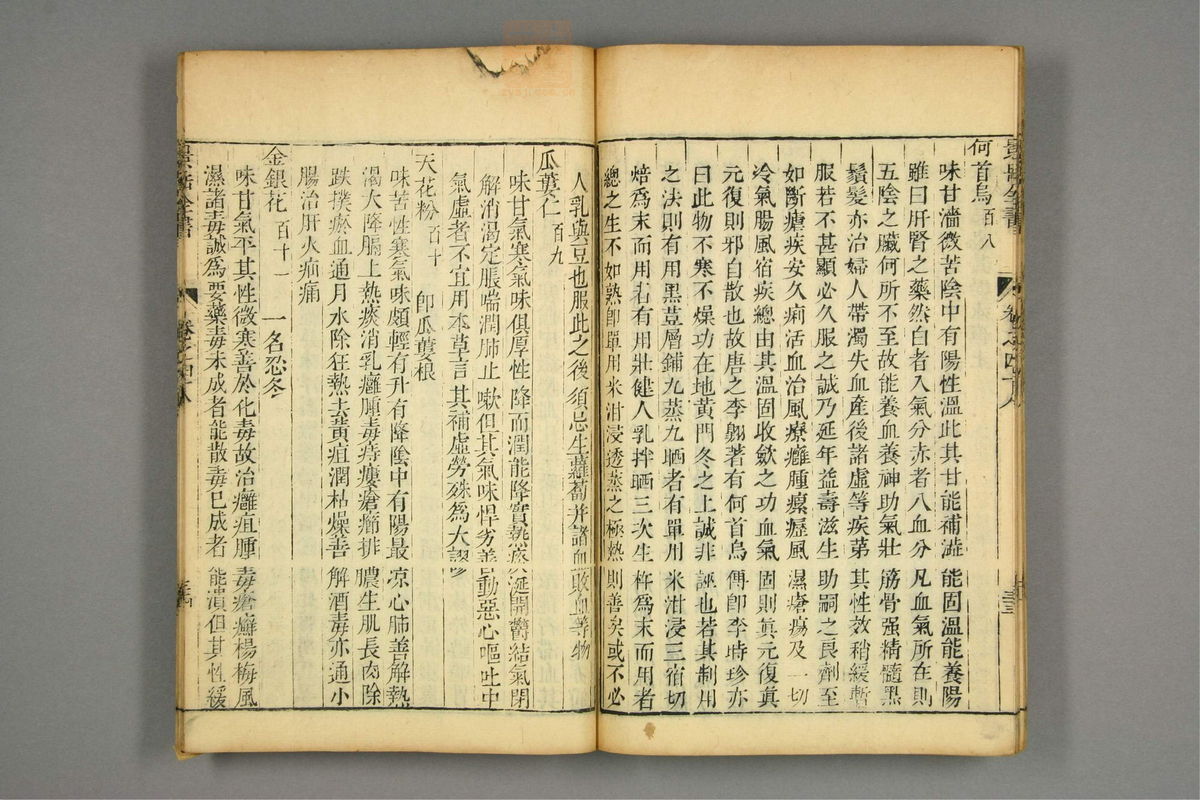 景岳全書
何首烏百八
味甘濇微苦陰中有陽性溫此其甘能補濇能固溫能養陽
雖曰肝腎之藥然白者入氣分赤者入血分凡血氣所在則
五陰之臟何所不至故能養血養神助氣壯筋骨强精髓黑
鬚髮亦治婦人帶濁失血產後諸虛等疾第其性效稍緩暫
服若不甚顯必久服之誠乃延年益壽滋生助嗣之良劑至
如斷瘧疾安久痢活血治風療癰腫瘰癧風濕瘡瘍及一切
冷氣腸風宿疾總由其溫固收斂之功血氣固則眞元復眞
元復則邪自散也故唐之李翺著有何首烏傳卽李時珍亦
曰此物不寒不燥功在地黃門冬之上誠非誣也若其制用
之法則有用黑荳層鋪九蒸九晒者有單用米泔浸三宿切
焙爲末而用者有用壯健人乳拌晒三次生杵爲末而用者
總之生不如熟卽單用米泔浸透蒸之極熱則善矣或不必
人乳與豆也服此之後須忌生蘿蔔并諸血敗血等物
瓜蔞仁百九
味甘氣寒氣味俱厚性降而潤能降實熱痰涎開鬱結氣閉
解消渴定脹喘潤肺止嗽但其氣味悍劣善動惡心嘔吐中
氣虛者不宜用本草言其補虛勞殊爲大謬
天花粉百十 卽瓜蔞根
味苦性寒氣味頗輕有升有降陰中有陽最凉心肺善解熱
渴大降膈上熱痰消乳癰腫毒痔瘻瘡癤排膿生肌長肉除
跌撲瘀血通月水除狂熱去黃疸潤枯燥善解酒毒亦通小
腸治肝火疝痛
金銀花百十一 一名忍冬
味甘氣平其性微寒善於化毒故治癰疽腫毒瘡癬楊梅風
濕諸毒誠爲要藥毒未成者能散毒已成者能潰但其性緩
景岳全書